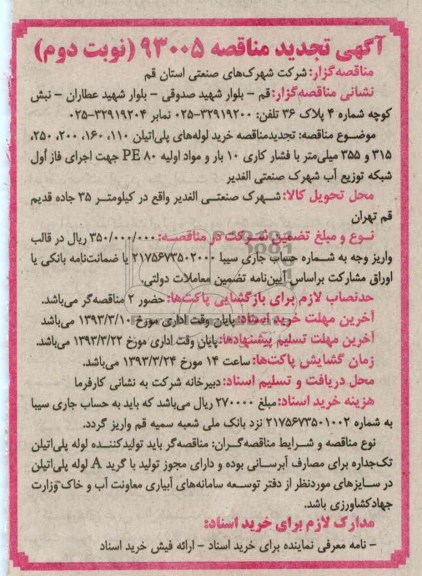 آگهی تجدید مناقصه ۹۳۰۰۵ (نوبت دوم)
مناقصه‌گزار: شرکت شهرک‌های صنعتی استان قم
نشانی مناقصه‌گزار: قم - بلوار شهید صدوقی - بلوار شهید عطاران - نبش
کوچه شماره ۴ پلاک ۳۶ تلفن: ۳۲۹۱۹۲۰۰-۰۲۵ نمابر ۳۲۹۱۹۲۰۴-۰۲۵
موضوع مناقصه: تجدیدمناقصه خرید لوله‌های پلی‌اتیلن ۱۱۰، ۱۶۰، ۲۰۰، ۲۵۰،
۳۱۵ و ۳۵۵ میلی‌متر با فشار کاری ۱۰ بار و مواد اولیه PE ۸۰ جهت اجرای فاز اول
شبکه توزیع آب شهرک صنعتی الغدیر
محل تحویل کالا: شهرک صنعتی الغدیر واقع در کیلومتر ۳۵ جاده قدیم
قم تهران
نوع و مبلغ تضمین شرکت در مناقصه: ۳۵۰/۰۰۰/۰۰۰ ریال در قالب
واریز وجه به شماره حساب جاری سیبا ۲۱۷۵۶۷۳۵۰۲۰۰۰ یا ضمانت‌نامه بانکی یا
اوراق مشارکت براساس آیین‌نامه تضمین معاملات دولتی.
حدنصاب لازم برای بازگشایی پاکت‌ها: حضور ۲ مناقصه‌گر می‌باشد.
آخرین مهلت خرید اسناد: پایان وقت اداری مورخ ۱۳۹۳/۳/۱۰ می‌باشد
آخرین مهلت تسلیم پیشنهادها: پایان وقت اداری مورخ ۱۳۹۳/۳/۲۲ می‌باشد.
زمان گشایش پاکت‌ها: ساعت ۱۴ مورخ ۱۳۹۳/۳/۲۴ می‌باشد.
محل دریافت و تسلیم اسناد: دبیرخانه شرکت به نشانی کارفرما
هزینه خرید اسناد: مبلغ ۲۷۰۰۰۰ ریال می‌باشد که باید به حساب جاری سیبا
به شماره ۲۱۷۵۶۷۳۵۰۱۰۰۲ نزد بانک ملی شعبه سمیه قم واریز گردد.
نوع مناقصه و شرایط مناقصه‌گران: مناقصه‌گر باید تولیدکننده لوله پلی‌اتیلن
تک‌جداره برای مصارف آبرسانی بوده و دارای مجوز تولید با گرید A لوله پلی‌اتیلن
در سایزهای موردنظر از دفتر توسعه سامانه‌های آبیاری معاونت آب و خاک وزارت
جهادکشاورزی باشد.
مدارک لازم برای خرید اسناد:
- نامه معرفی نماینده برای خرید اسناد - ارائه فیش خرید اسناد